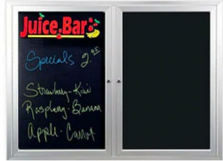 Juice Bar
Specials 2.25
Strawberry-Kiwi
Raspberry-Banana
Apple-Carrot